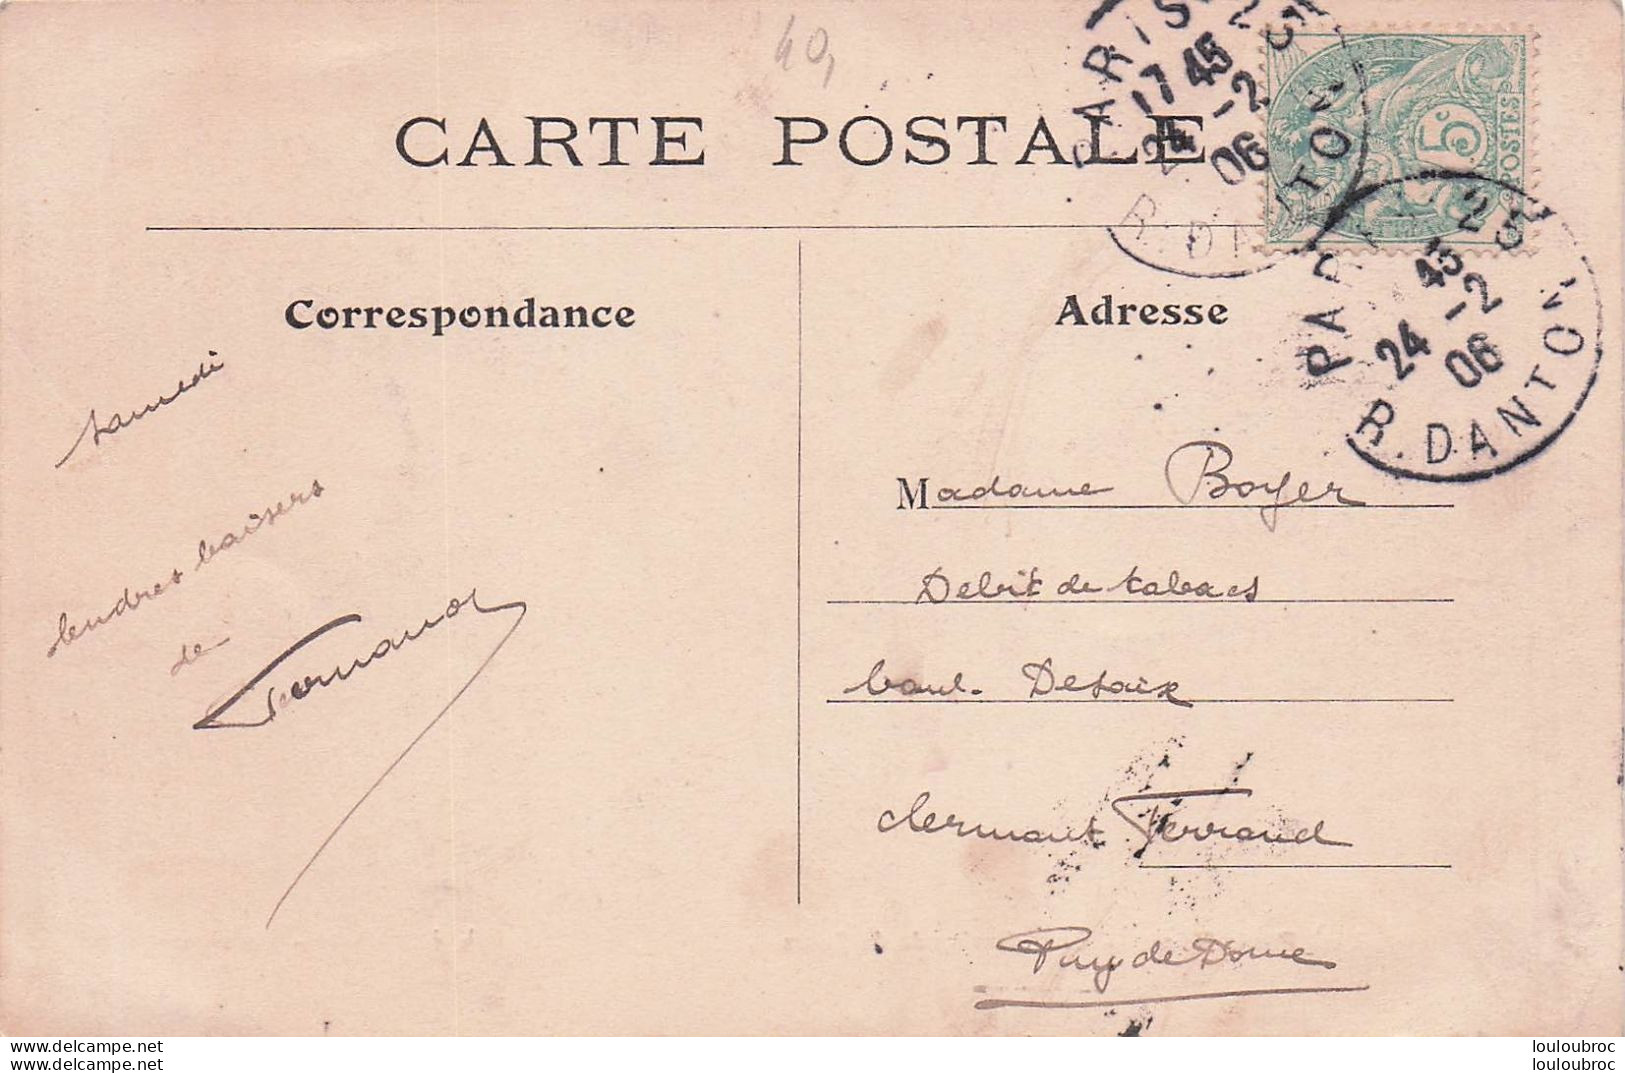 40,
CARTE POSTALE
PARIS 25
17 45
24 -2
06
R. DANTON
5c
POSTES
PARIS 25
45
24 -2
06
R. DANTON
Correspondance
Adresse
Samedi
tendres baisers
de
Fernand
Madame Boyer
Debit de tabacs
boul. Desaix
Clermont Ferrand
Puy de Dome
www.delcampe.net
www.delcampe.net
louloubroc
louloubroc